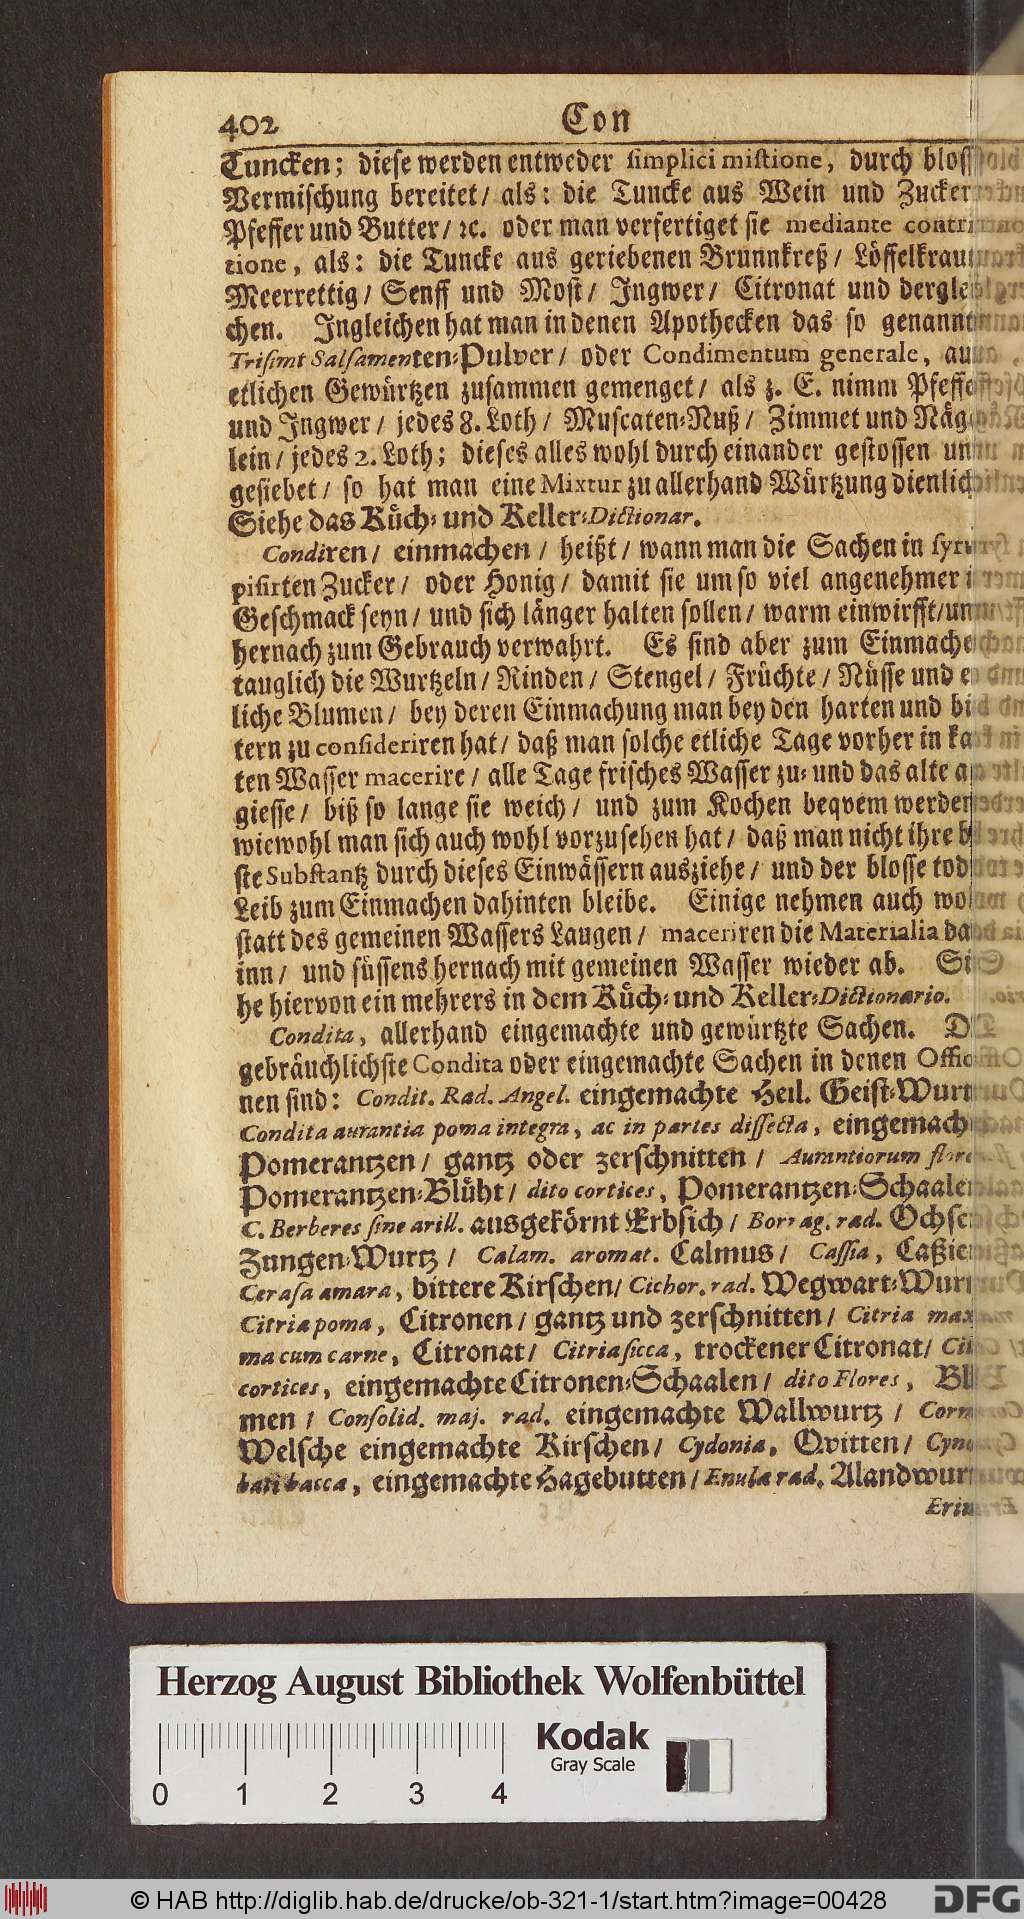 402 Con
Tuncken; diese werden entweder simplici mistione, durch bloss
Vermischung bereitet/ als: die Tuncke aus Wein und Zucker
Pfeffer und Butter/ ꝛc. oder man verfertiget sie mediante contri
tione, als: die Tuncke aus geriebenen Brunnkreß/ Löffelkrau
Meerrettig/ Senff und Most/ Ingwer/ Citronat und dergle
chen. Ingleichen hat man in denen Apothecken das so genannt
Trisimt Salsamenten-Pulver/ oder Condimentum generale, au
etlichen Gewürtzen zusammen gemenget/ als z. E. nimm Pfeffe
und Ingwer/ jedes 8. Loth/ Muscaten-Nuß/ Zimmet und Näg
lein/ jedes 2. Loth; dieses alles wohl durch einander gestossen un
gesiebet/ so hat man eine Mixtur zu allerhand Würtzung dienlich
Siehe das Küch- und Keller-Dictionar.
Condiren/ einmachen/ heißt/ wann man die Sachen in syru
pisirten Zucker/ oder Honig/ damit sie um so viel angenehmer i
Geschmack seyn/ und sich länger halten sollen/ warm einwirfft/un
hernach zum Gebrauch verwahrt. Es sind aber zum Einmache
tauglich die Wurtzeln/ Rinden/ Stengel/ Früchte/ Nüsse und e
liche Blumen/ bey deren Einmachung man bey den harten und bi
tern zu consideriren hat/ daß man solche etliche Tage vorher in ka
ten Wasser macerire/ alle Tage frisches Wasser zu- und das alte a
giesse/ biß so lange sie weich/ und zum Kochen beqvem werden
wiewohl man sich auch wohl vorzusehen hat/ daß man nicht ihre b
ste Substantz durch dieses Einwässern ausziehe/ und der blosse tod
Leib zum Einmachen dahinten bleibe. Einige nehmen auch wo
statt des gemeinen Wassers Laugen/ maceriren die Materialia da
inn/ und süssens hernach mit gemeinen Wasser wieder ab. Si
he hiervon ein mehrers in dem Küch- und Keller-Dictionario.
Condita, allerhand eingemachte und gewürtzte Sachen. D
gebräuchlichste Condita oder eingemachte Sachen in denen Offici
nen sind: Condit. Rad. Angel. eingemachte Heil. Geist-Wurt
Condita aurantia poma integra, ac in partes dissecta, eingemach
Pomerantzen/ gantz oder zerschnitten/ Aurantiorum flor
Pomerantzen-Blüht/ dito cortices, Pomerantzen-Schaale
C. Berberes sine arill. ausgekörnt Erbsich/ Borrag. rad. Ochse
Zungen-Wurtz/ Calam. aromat. Calmus/ Cassia, Caßie
Cerasa amara, bittere Kirschen/ Cichor. rad. Wegwart-Wur
Citria poma, Citronen/ gantz und zerschnitten/ Citria max
ma cum carne, Citronat/ Citria sicca, trockener Citronat/ Ci
cortices, eingemachte Citronen-Schaalen/ dito Flores, Bl
men/ Consolid. maj. rad. eingemachte Wallwurtz/ Corn
Welsche eingemachte Kirschen/ Cydonia, Qvitten/ Cyno
bati bacca, eingemachte Hagebutten/ Enula rad. Alandwur
Erin
Herzog August Bibliothek Wolfenbüttel
Kodak
Gray Scale
0 1 2 3 4
© HAB http://diglib.hab.de/drucke/ob-321-1/start.htm?image=00428
DFG